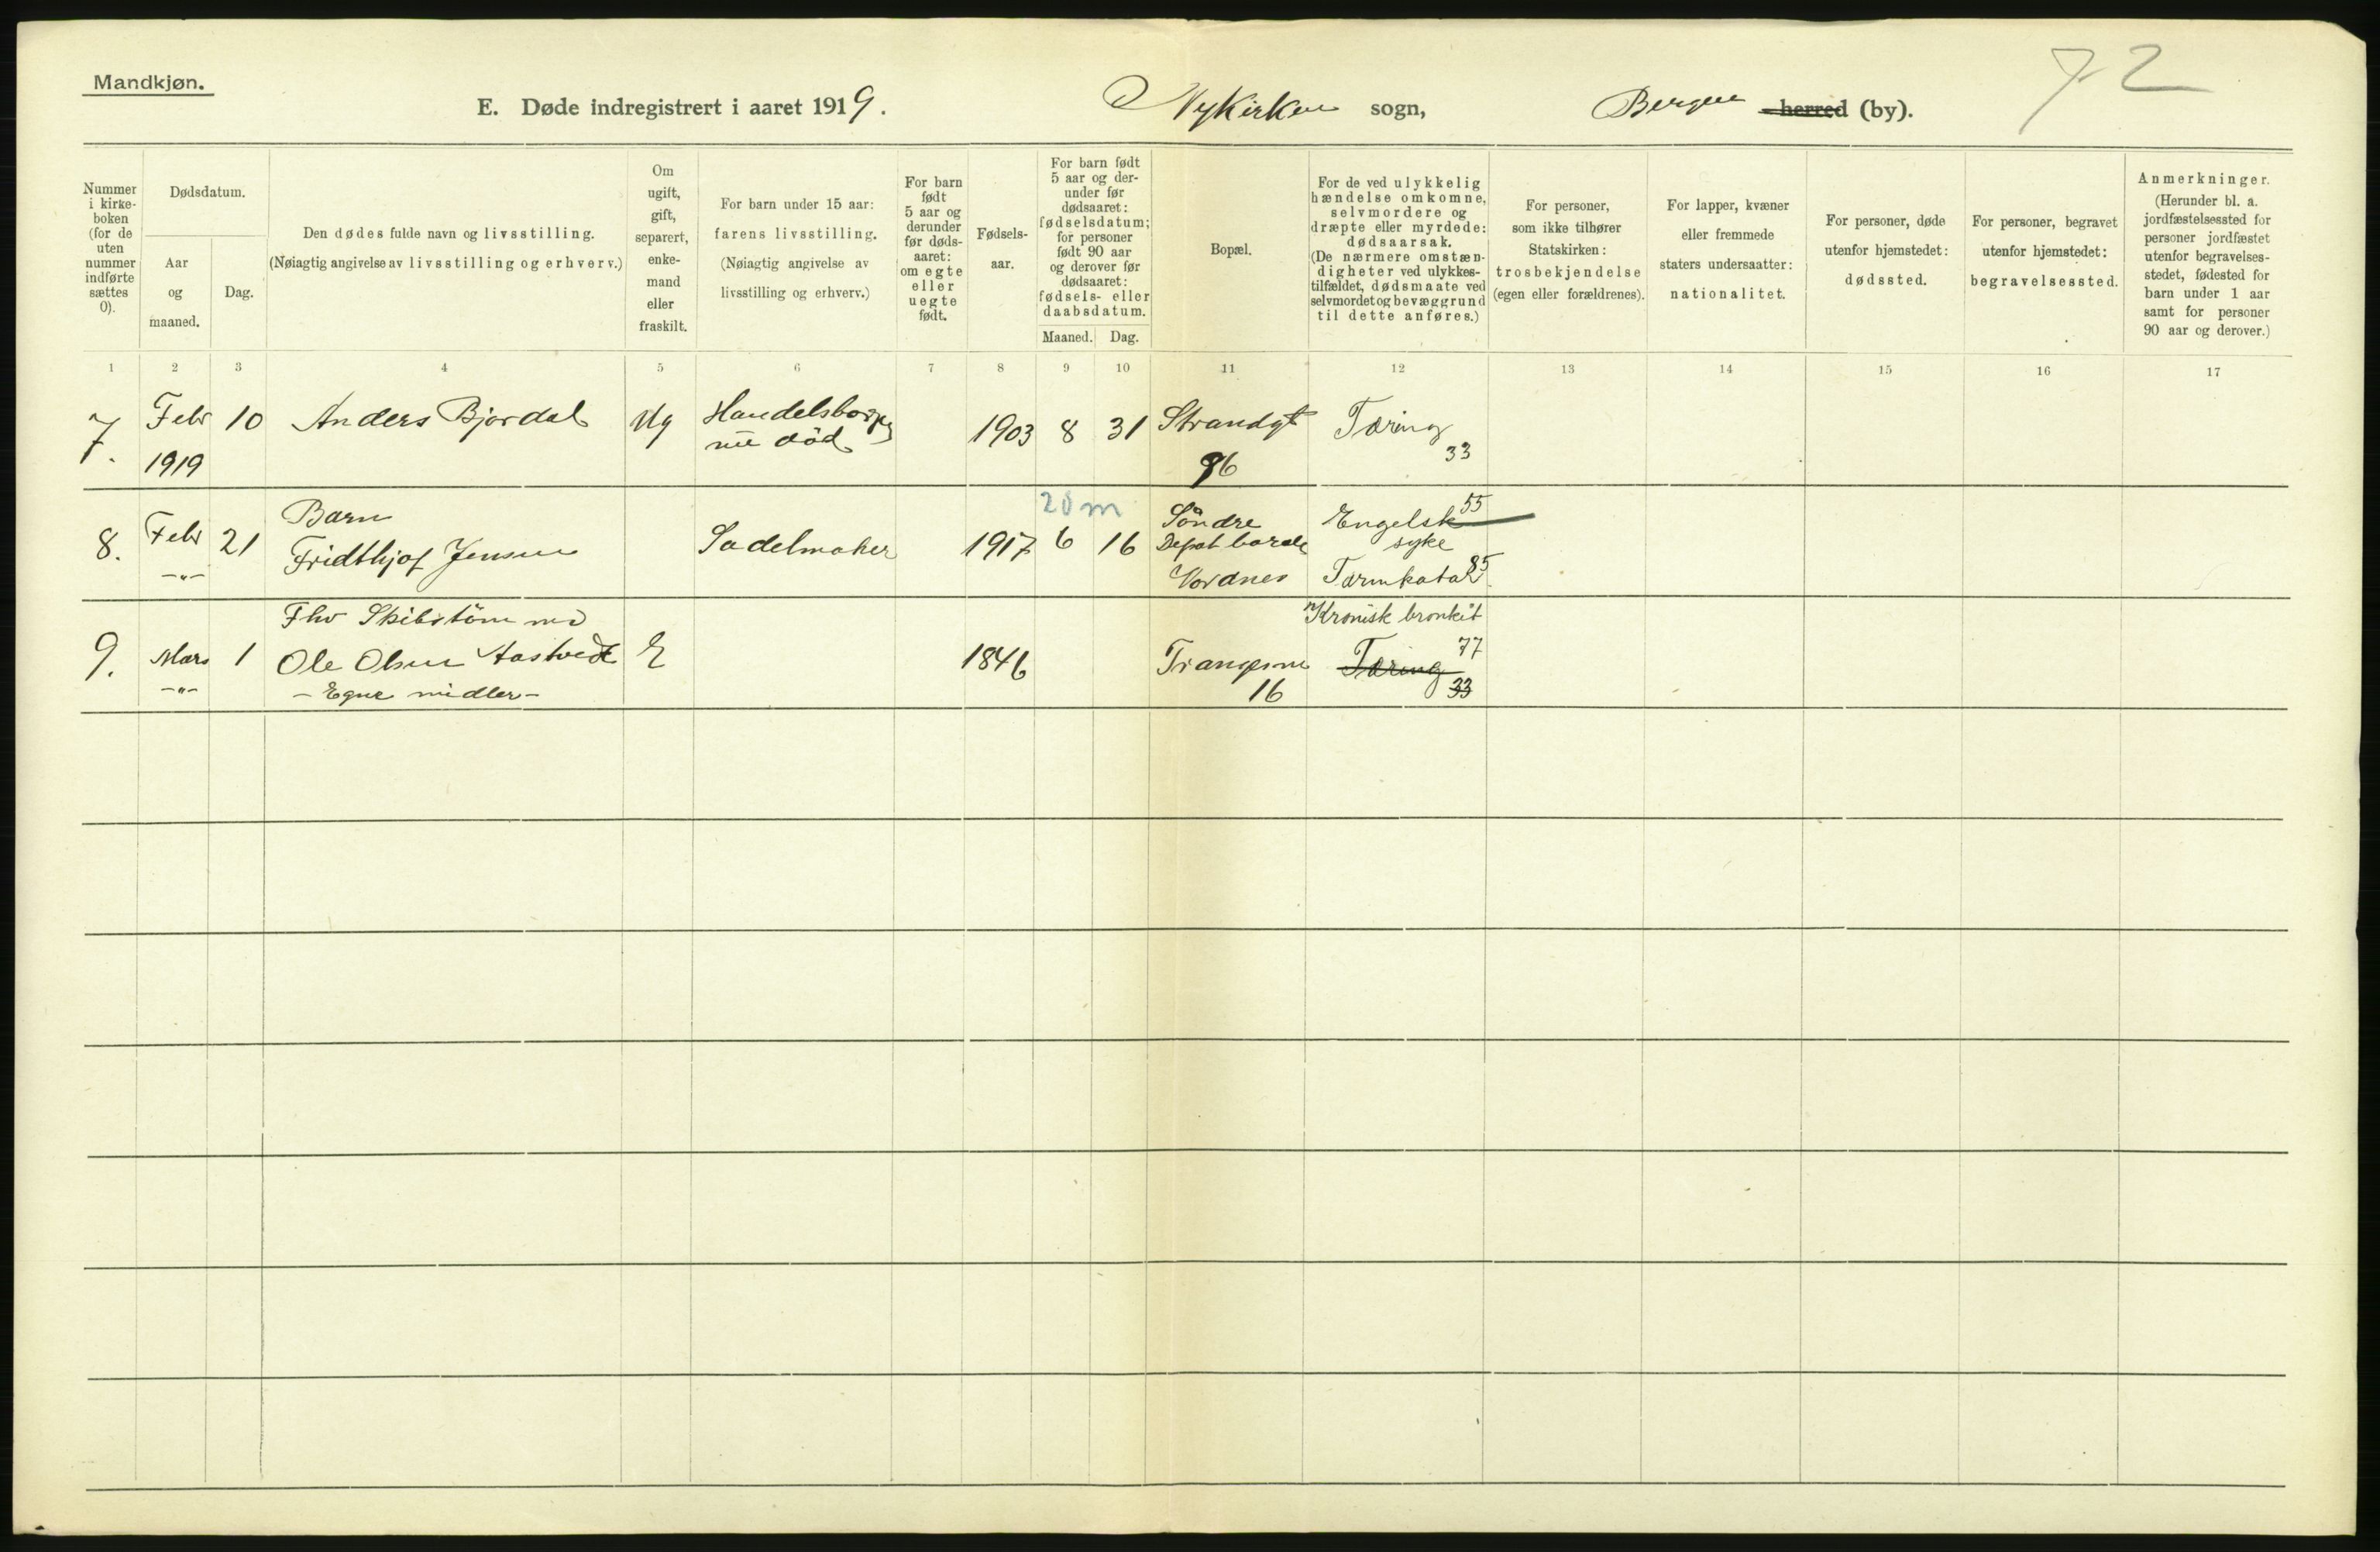 Mandkjøn.
72
E. Døde indregistrert i aaret 1919. Nykirken sogn, Bergen herred (by).
Nummer i kirke-boken (for de uten nummer indførte sættes 0).
Dødsdatum.
Aar og maaned.
Dag.
Den dødes fulde navn og livsstilling.
(Nøiagtig angivelse av livsstilling og erhverv.)
Om ugift, gift, separert, enke-mand eller fraskilt.
For barn under 15 aar: farens livsstilling. (Nøiagtig angivelse av livsstilling og erhverv.)
For barn født 5 aar og derunder før døds-aaret: om egte eller uegte født.
Fødsels-aar.
For barn født 5 aar og der-under før dødsaaret: fødselsdatum; for personer født 90 aar og derover før dødsaaret: fødsels- eller daabsdatum.
Maaned. Dag.
Bopæl.
For de ved ulykkelig hændelse omkomne, selvmordere og dræpte eller myrdede: dødsaarsak. (De nærmere omstæn-digheter ved ulykkes-tilfældet, dødsmaate ved selvmordet og bevæggrund til dette anføres.)
For personer, som ikke tilhører Statskirken: trosbekjendelse (egen eller forældrenes).
For lapper, kvæner eller fremmede staters undersaatter: nationalitet.
For personer, døde utenfor hjemstedet: dødssted.
For personer, begravet utenfor hjemstedet: begravelsessted.
Anmerkninger. (Herunder bl. a. jordfæstelsessted for personer jordfæstet utenfor begravelses-stedet, fødested for barn under 1 aar samt for personer 90 aar og derover.)
1 2 3 4 5 6 7 8 9 10 11 12 13 14 15 16 17
7. Febr 1919 10 Anders Bjordal Ug Handelsborger nu död 1903 8 31 Strandgt 86 Tæring 33
20 m
8. Febr -"- 21 Barn Fridthjof Jensen Sadelmaker 1917 6 16 Söndre Nordnes Engelsk syke 55 Tarmkatar 85
9. Mars -"- 1 Fhv Skibstömmerm Ole Olsen Aastvedt - Egne midler - E 1846 Trangesm 16 Kronisk bronkit 77 Tæring 33